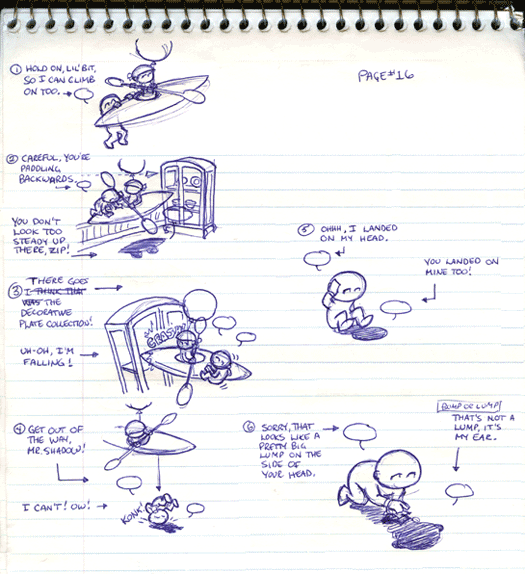 PAGE #16
① HOLD ON, LIL' BIT,
SO I CAN CLIMB
ON TOO.
② CAREFUL, YOU'RE
PADDLING
BACKWARDS.
YOU DON'T
LOOK TOO
STEADY UP
THERE, ZIP!
THERE GOES
③ I THINK THAT
WAS THE
DECORATIVE
PLATE COLLECTION!
CRASH!
UH-OH, I'M
FALLING!
④ GET OUT OF
THE WAY,
MR. SHADOW!
I CAN'T! OW!
KONK!
⑤ OHHH, I LANDED
ON MY HEAD.
YOU LANDED ON
MINE TOO!
⑥ SORRY, THAT
LOOKS LIKE A
PRETTY BIG
LUMP ON THE
SIDE OF
YOUR HEAD.
BUMP OR LUMP
THAT'S NOT
A LUMP, IT'S
MY EAR.